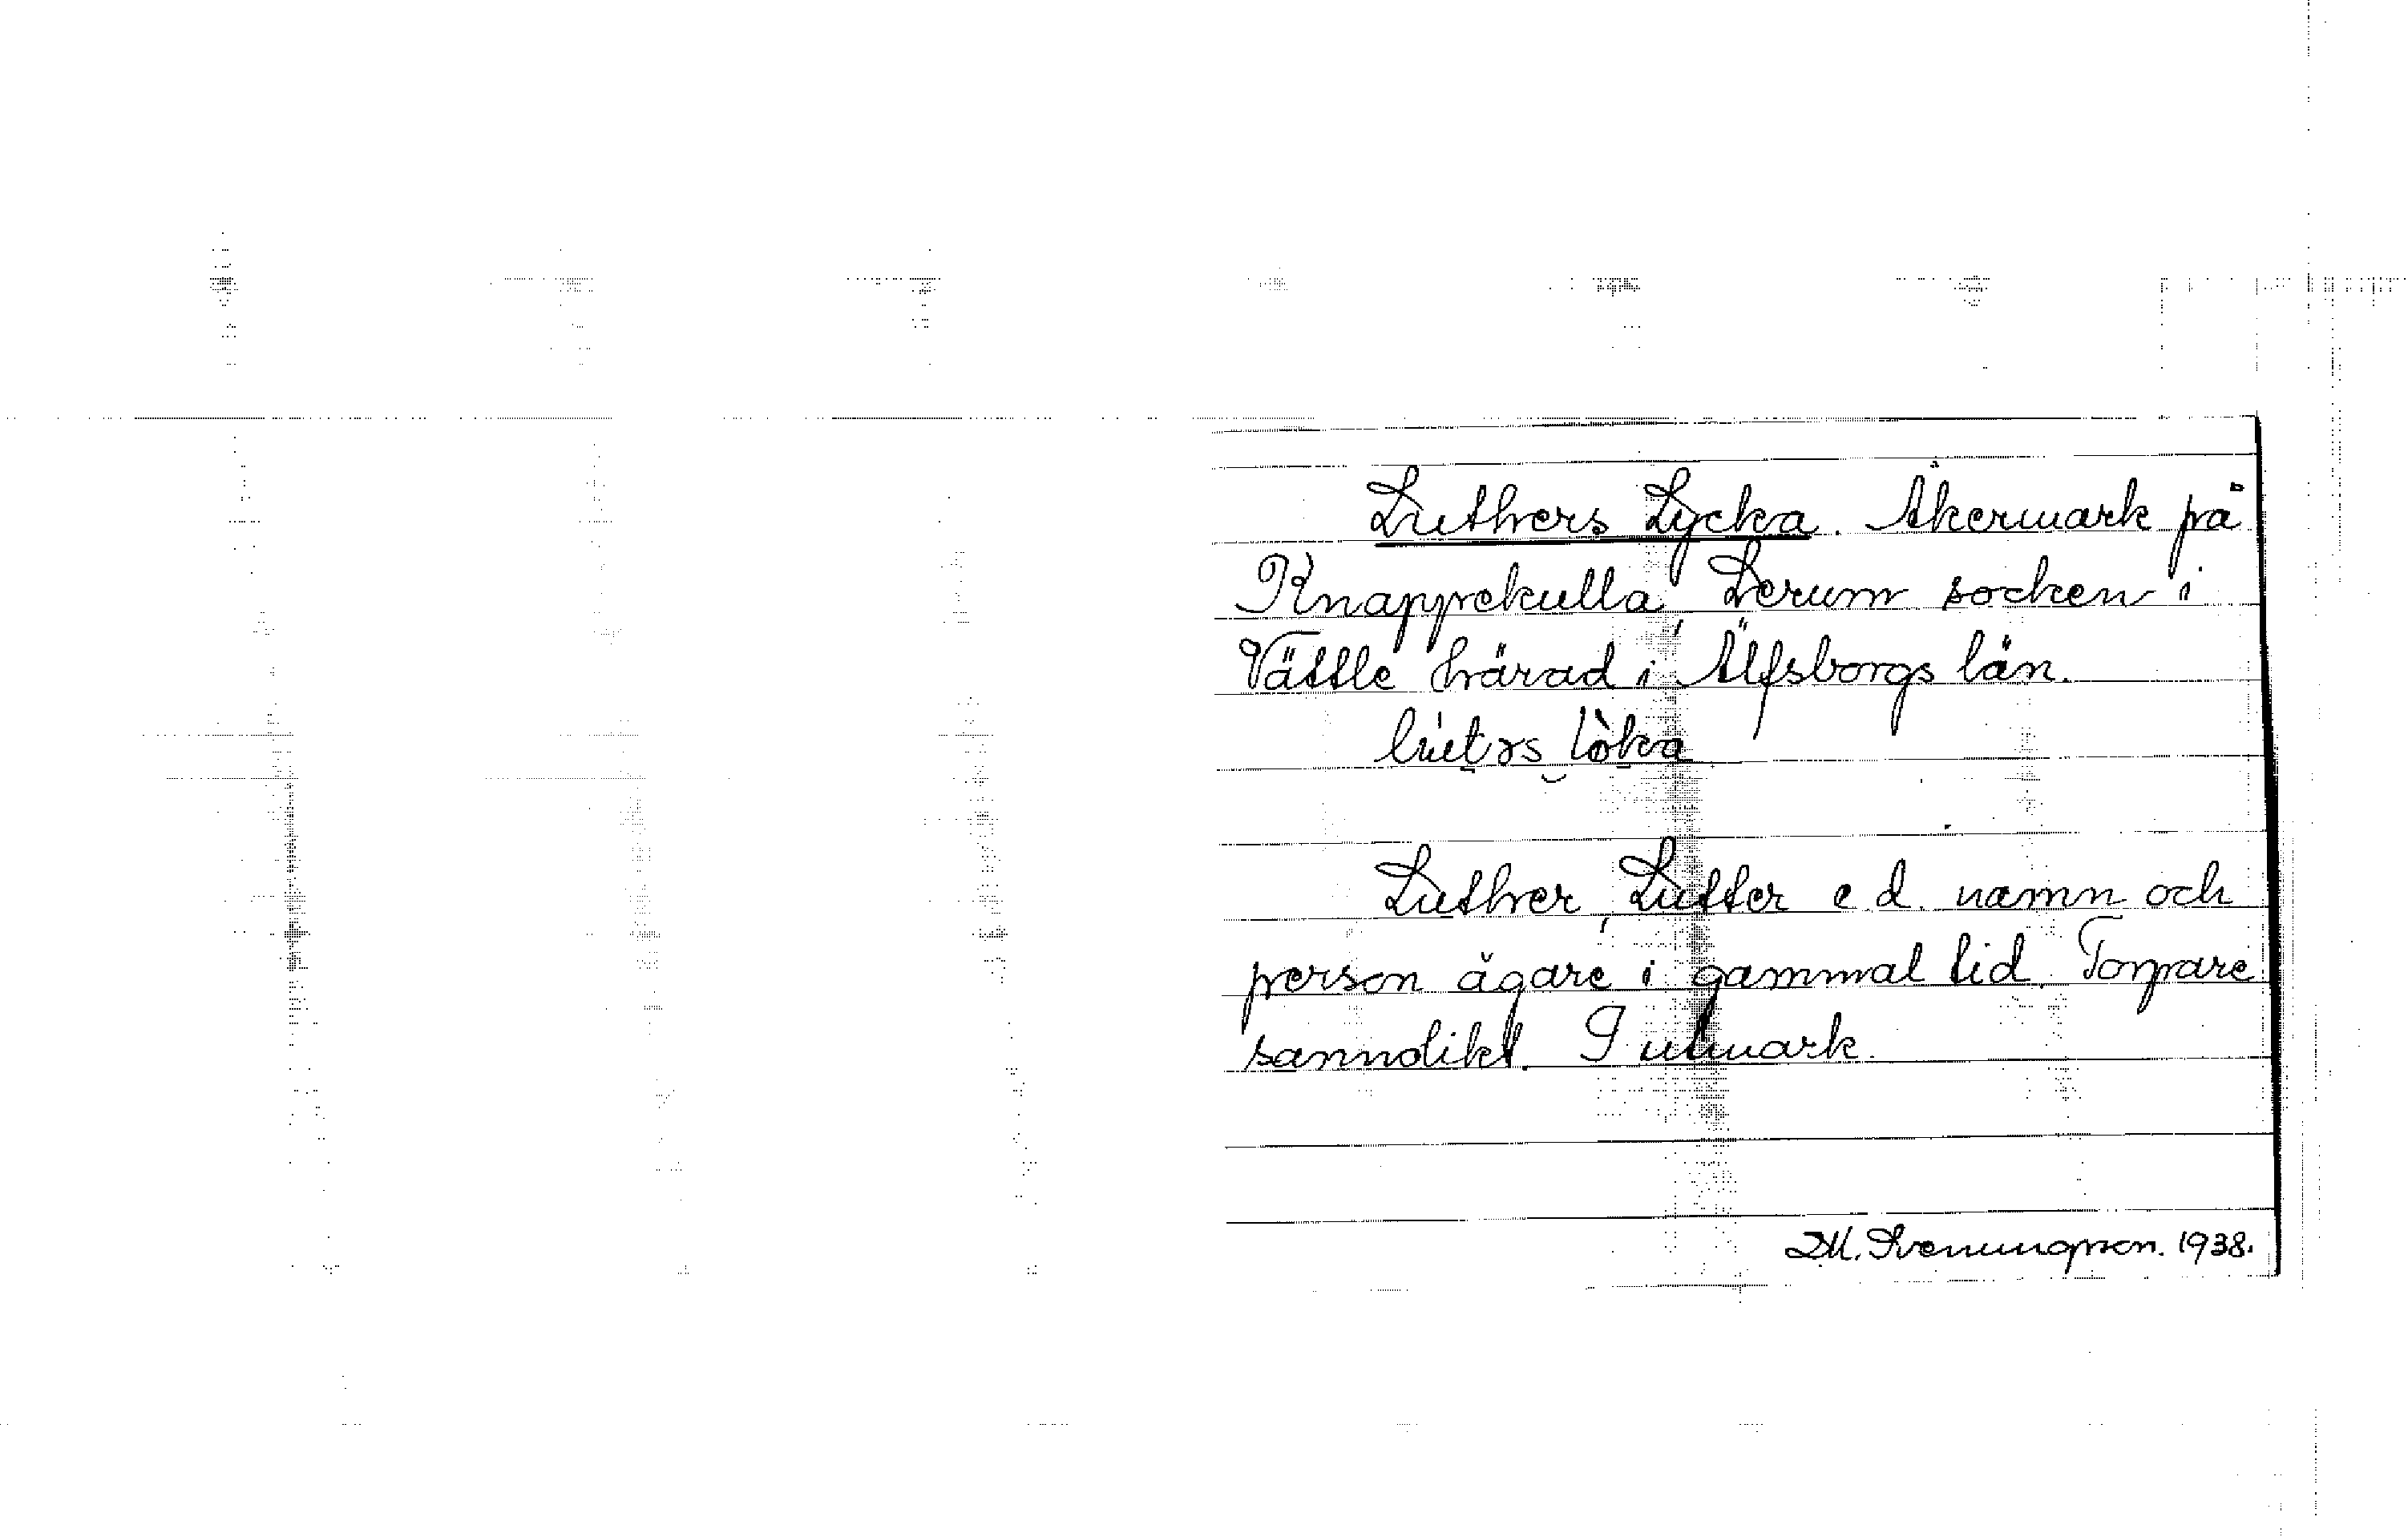 Luthers Lycka. Åkermark på
Knappekulla, Lerum socken i
Vättle härad i Älfsborgs län.
Luther, Lutter e.d. namn och
person ägare i gammal tid. Torpare
sannolikt. I utmark.
D.M. Svenungsson. 1938.